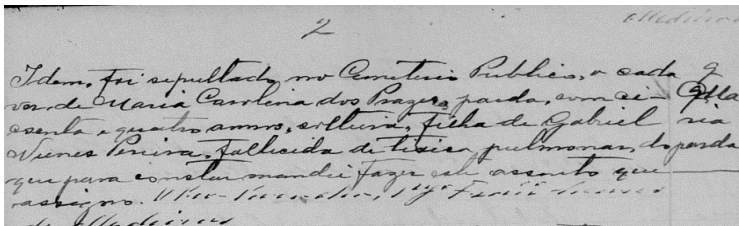 2
Medeiros
Idem, foi sepultado no Cemeterio Publico, o cada
ver de Maria Carolina dos Prazeres, parda, com cin
coenta e quatro annos, solteira, filha de Gabriel
Nunes Pereira, fallecida de tisica pulmonar, do
que para constar mandei fazer este assento que
assigno. O
de Medeiros
Ma
ria
parda